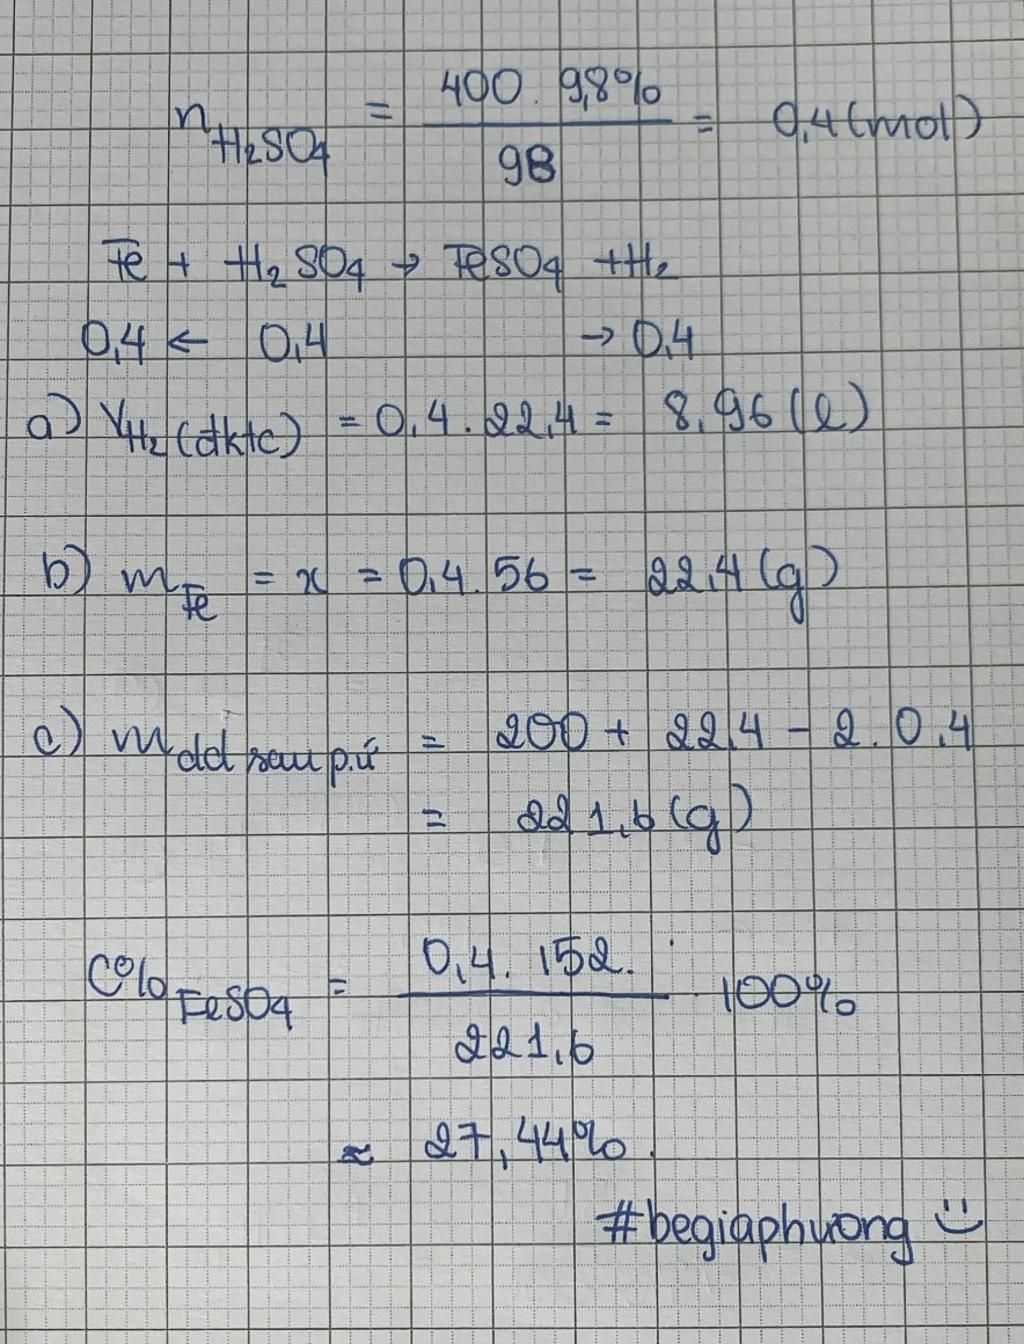 n H₂SO₄ = 400 . 9,8% / 98 = 0,4 (mol)
Fe + H₂SO₄ → FeSO₄ + H₂
0,4 ← 0,4 → 0,4
a) V H₂ (đktc) = 0,4 . 22,4 = 8,96 (l)
b) m Fe = x = 0,4 . 56 = 22,4 (g)
c) m dd sau p.ứ = 200 + 22,4 - 2 . 0,4
= 221,6 (g)
C% FeSO₄ = 0,4 . 152 . / 221,6 . 100%
≈ 27,44% .
#begiaphuong :)